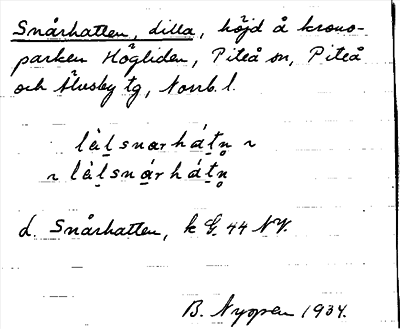 Snårhatten, dilla, höjd å krono-
parken Högliden, Piteå sn, Piteå
och Älvsby tg, Norrb. l.
làḻsnarháṯn̥ ~
~ làḻsnárháṯn̥
d. Snårhatten, k G. 44 NV.
B. Nygren 1934.